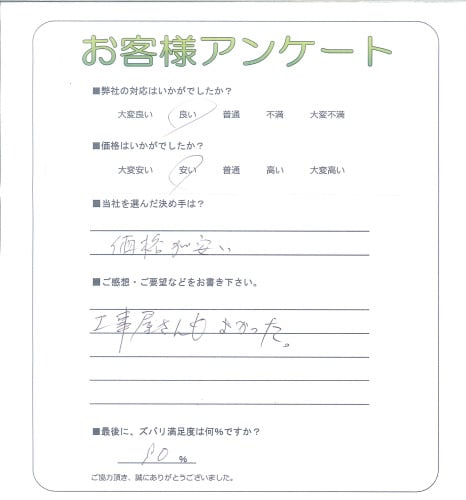 お客様アンケート
■弊社の対応はいかがでしたか？
大変良い 良い 普通 不満 大変不満
■価格はいかがでしたか？
大変安い 安い 普通 高い 大変高い
■当社を選んだ決め手は？
価格が安い
■ご感想・ご要望などをお書き下さい。
工事屋さんもよかった。
■最後に、ズバリ満足度は何%ですか？
80 %
ご協力頂き、誠にありがとうございました。